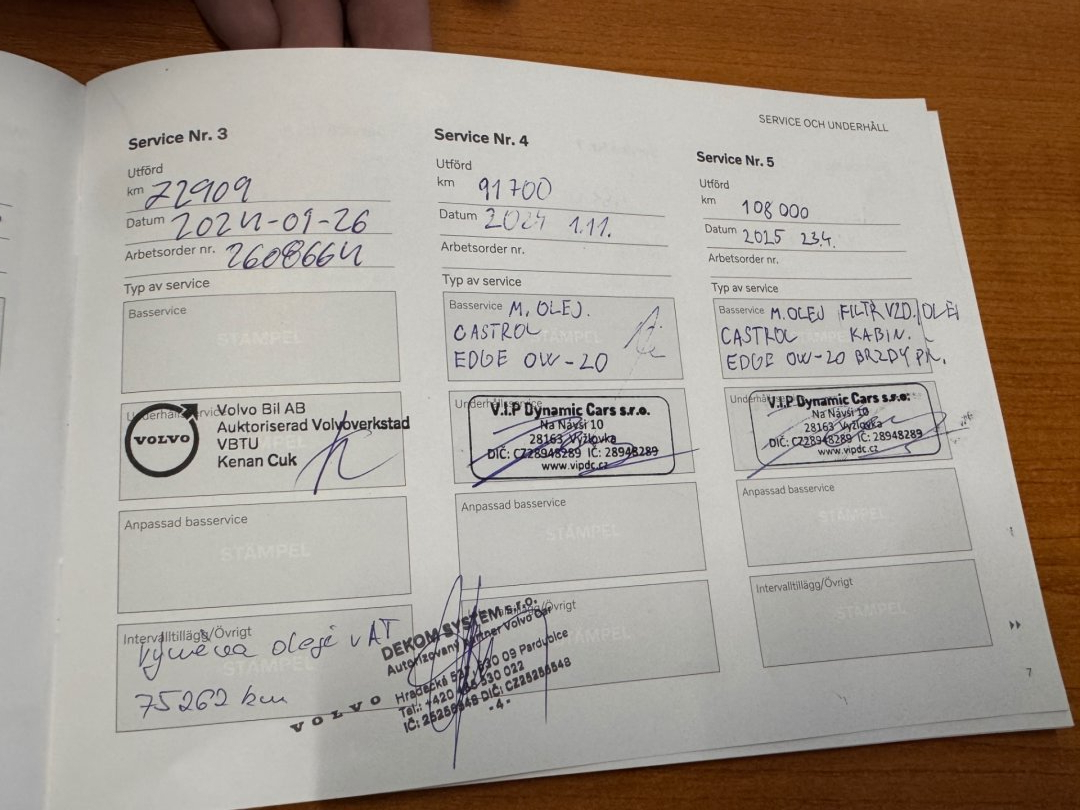 SERVICE OCH UNDERHÅLL
Service Nr. 3
Utförd
km 72909
Datum 2024-01-26
Arbetsorder nr. 2608664
Typ av service
Basservice
STÄMPEL
Underhållsservice
VOLVO
Volvo Bil AB
Auktoriserad Volvoverkstad
VBTU
Kenan Cuk
Anpassad basservice
STÄMPEL
Intervalltillägg/Övrigt
Výměna oleje v AT
75262 km
VOLVO
DEKOM SYSTEM s.r.o.
Autorizovaný partner Volvo Car
530 09 Pardubice
IČ: 25256548 DIČ: CZ25256548
- 4 -
Service Nr. 4
Utförd
km 91700
Datum 2024 1.11.
Arbetsorder nr.
Typ av service
Basservice M. OLEJ.
CASTROL
EDGE 0W-20
STÄMPEL
Underhållsservice
V.I.P Dynamic Cars s.r.o.
Na Návsi 10
28163 Vyžlovka
DIČ: CZ28948289 IČ: 28948289
www.vipdc.cz
Anpassad basservice
STÄMPEL
Intervalltillägg/Övrigt
STÄMPEL
Service Nr. 5
Utförd
km 108 000
Datum 2025 23.4.
Arbetsorder nr.
Typ av service
Basservice M. OLEJ FILTR VZD. OLEJ
CASTROL KABIN.
EDGE 0W-20 BRZDY
STÄMPEL
Underhållsservice
V.I.P Dynamic Cars s.r.o.
Na Návsi 10
28163 Vyžlovka
DIČ: CZ28948289 IČ: 28948289
www.vipdc.cz
Anpassad basservice
STÄMPEL
Intervalltillägg/Övrigt
STÄMPEL
7